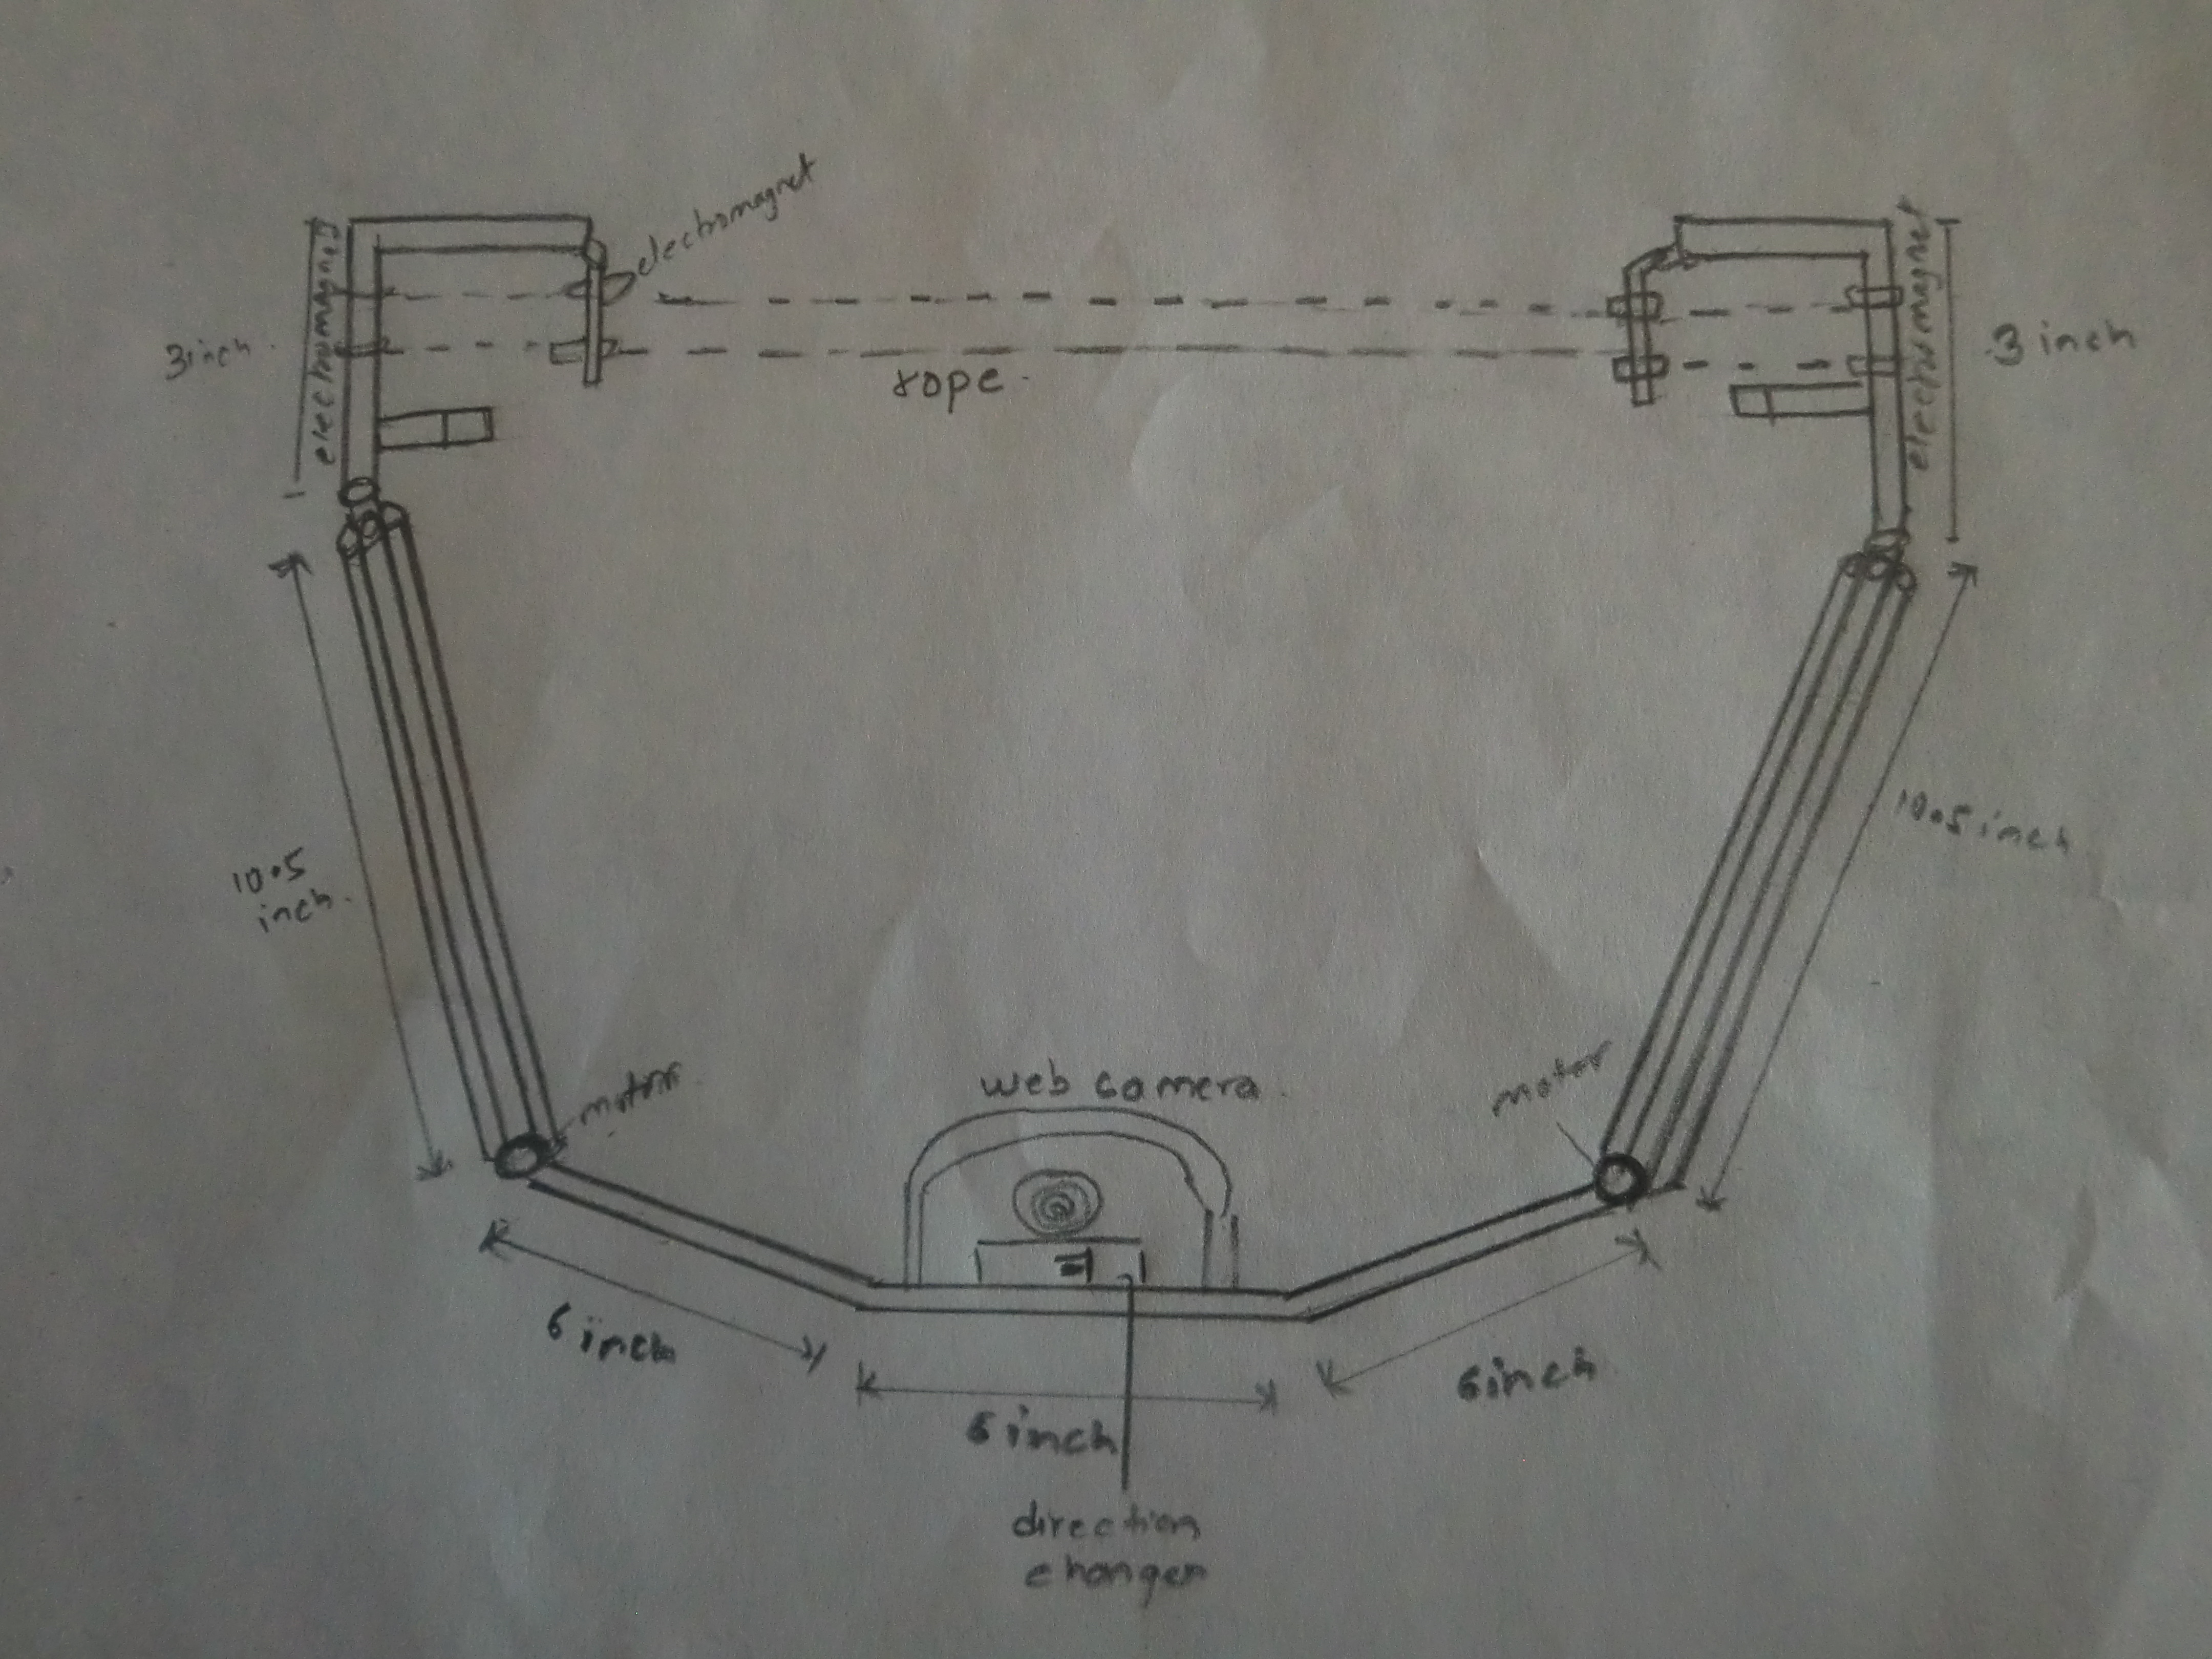 electromagnet
electromagnet
electromagnet
3 inch.
3 inch
rope.
10.5
inch.
10.5 inch
motor
web camera.
motor
6 inch
6 inch
6 inch
direction
changer